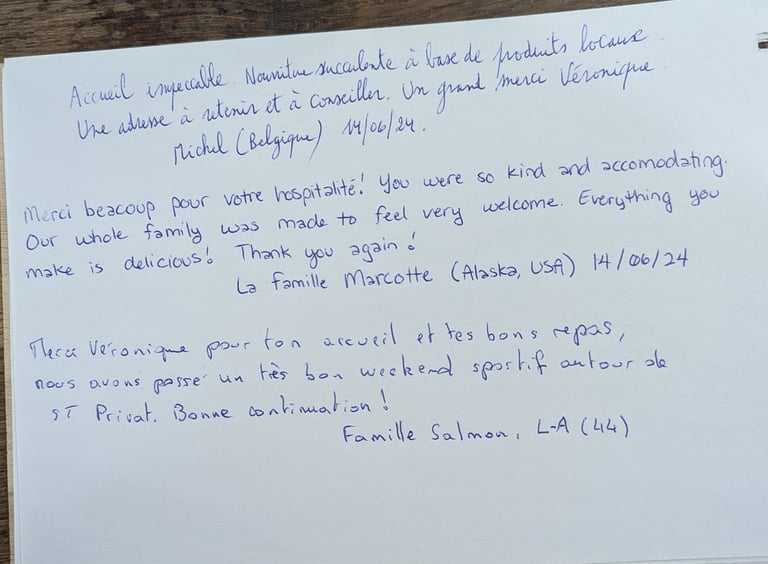 Accueil impeccable. Nourriture succulente à base de produits locaux.
Une adresse à retenir et à conseiller. Un grand merci Véronique.
Michel (Belgique) 14/06/24.
Merci beacoup pour votre hospitalité! You were so kind and accomodating.
Our whole family was made to feel very welcome. Everything you
make is delicious! Thank you again!
La famille Marcotte (Alaska, USA) 14/06/24
Merci Véronique pour ton accueil et tes bons repas,
nous avons passé un très bon weekend sportif autour de
ST Privat. Bonne continuation!
Famille Salmon, L-A (44)